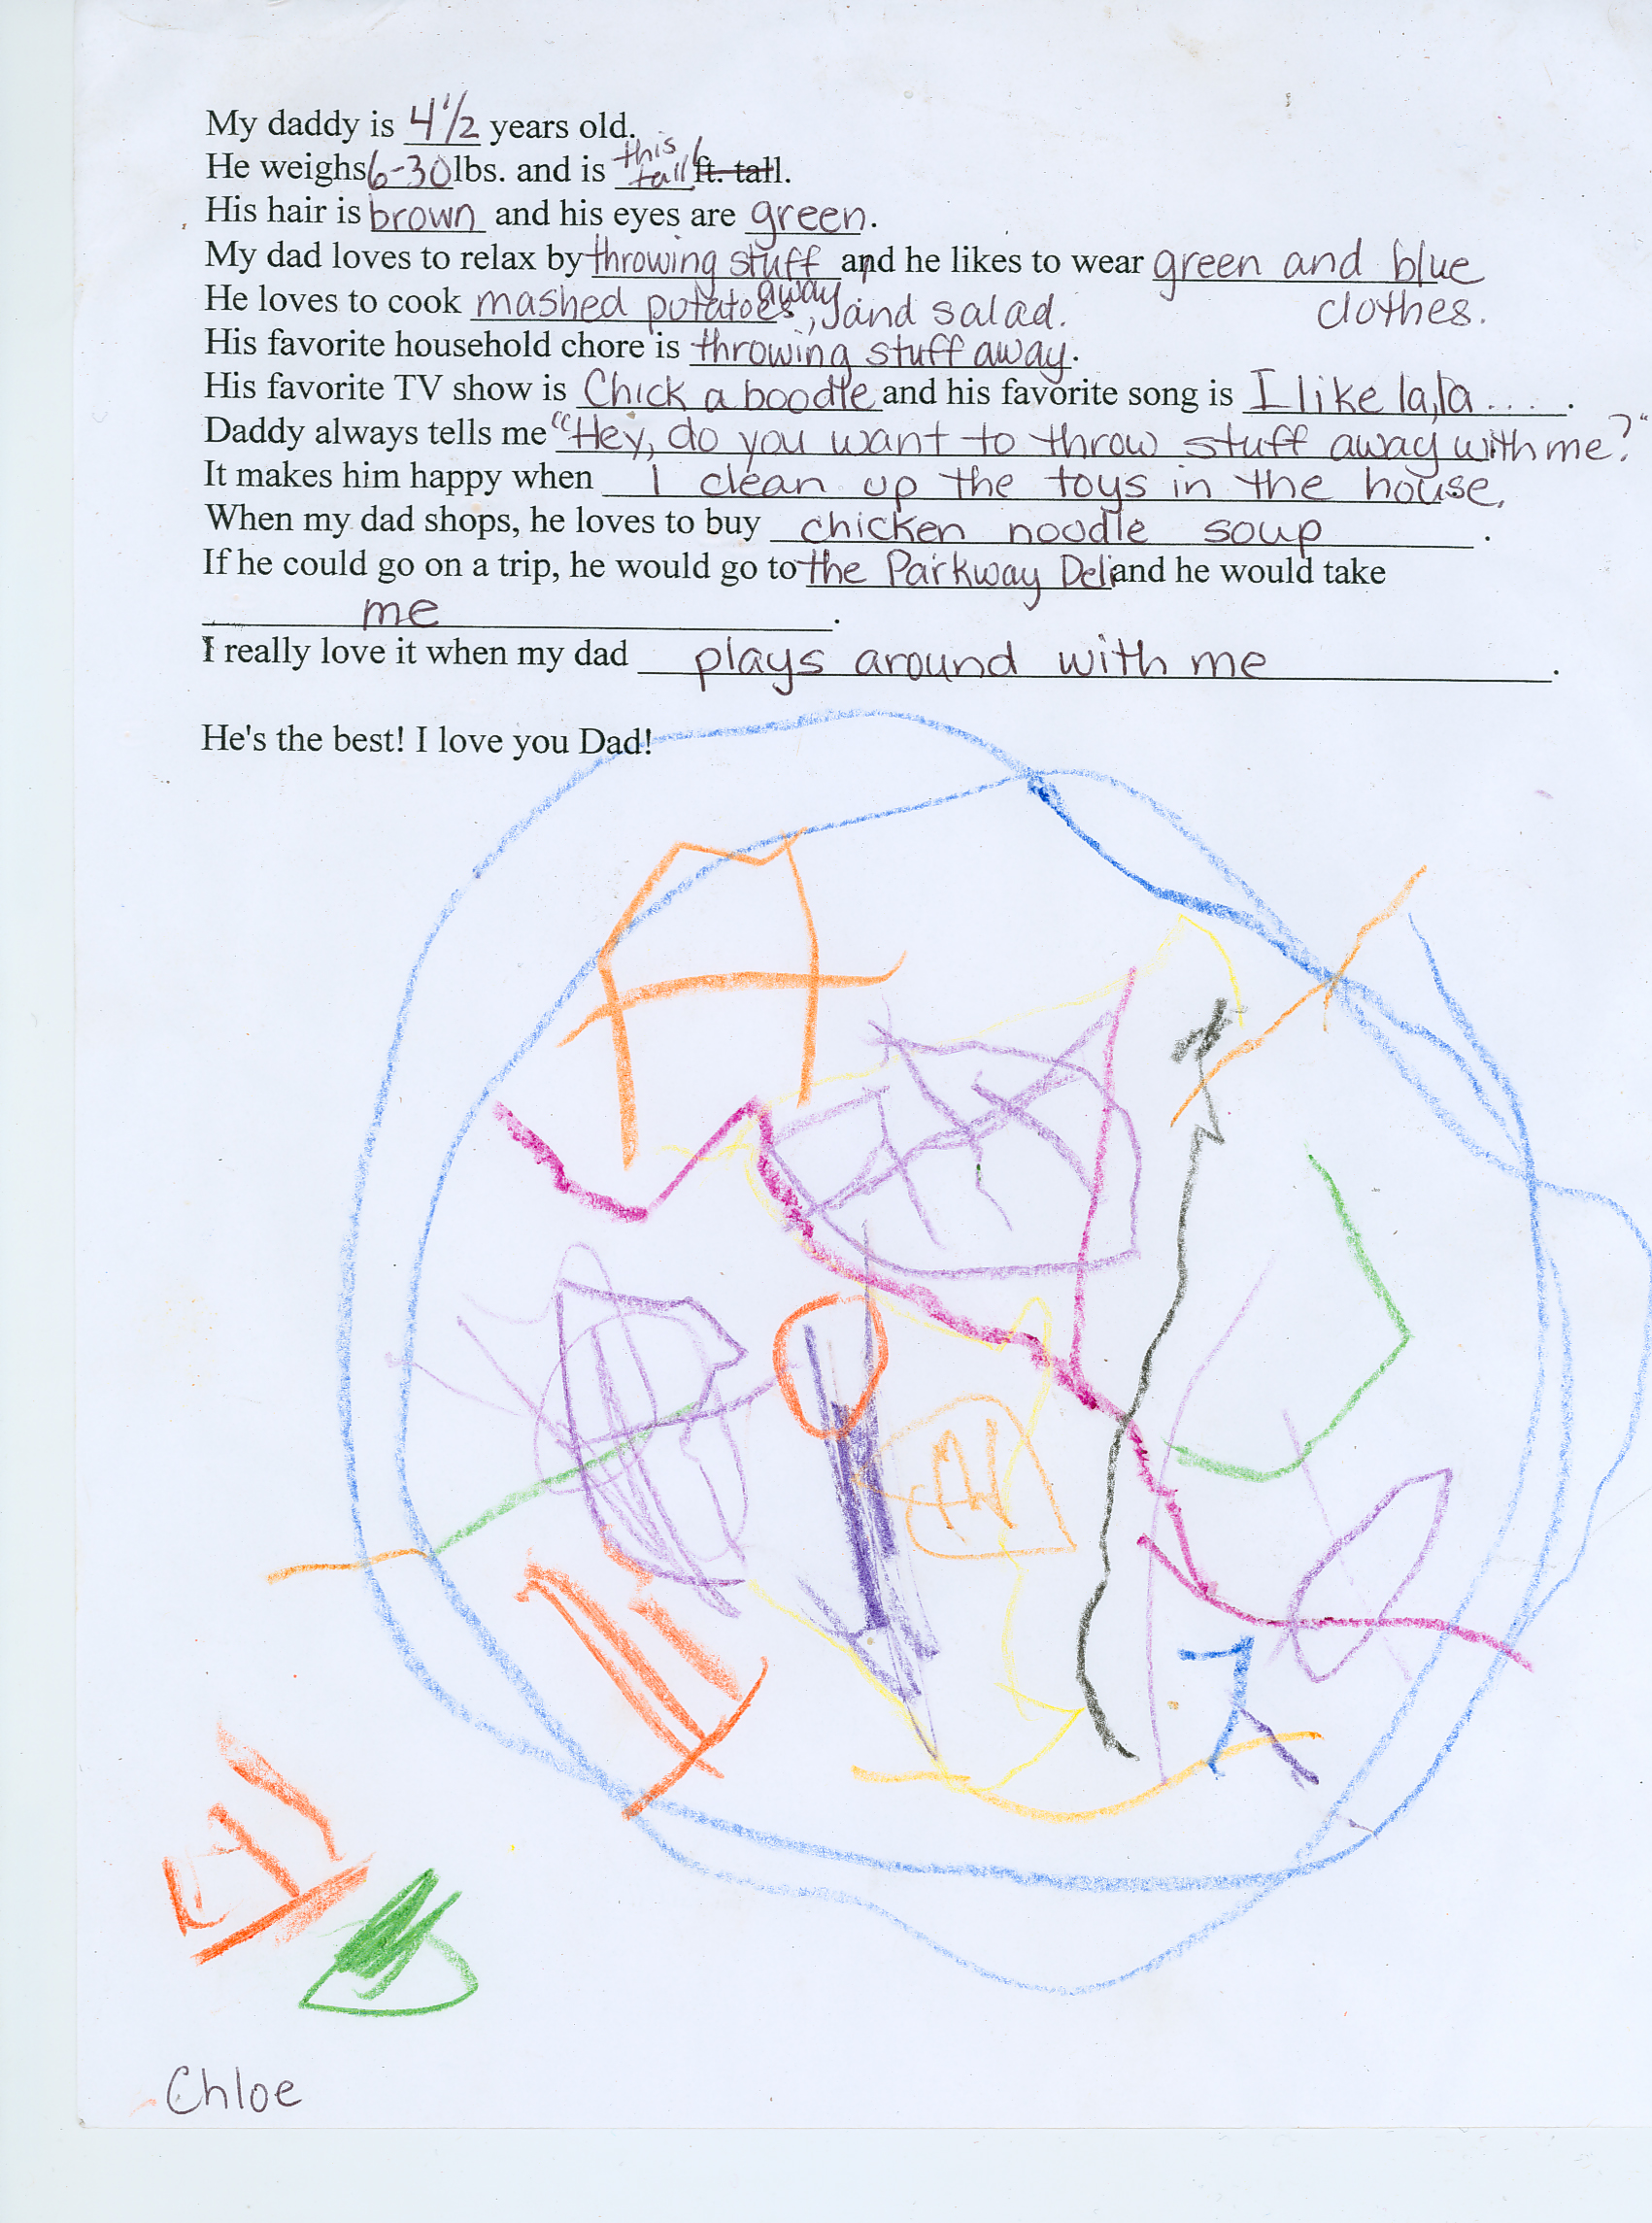 My daddy is 4 1/2 years old.
He weighs 6-30 lbs. and is this tall ft. tall.
His hair is brown and his eyes are green.
My dad loves to relax by throwing stuff away and he likes to wear green and blue clothes.
He loves to cook mashed potatoes, and salad.
His favorite household chore is throwing stuff away.
His favorite TV show is Chick a boodle and his favorite song is I like la, la ....
Daddy always tells me "Hey, do you want to throw stuff away with me?"
It makes him happy when I clean up the toys in the house.
When my dad shops, he loves to buy chicken noodle soup.
If he could go on a trip, he would go to the Parkway Deli and he would take
me.
I really love it when my dad plays around with me.
He's the best! I love you Dad!
Chloe